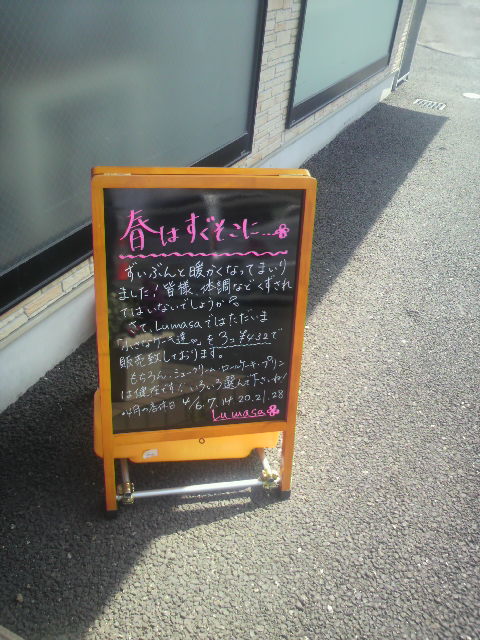 春はすぐそこに…
ずいぶんと暖かくなってまいり
ました！皆様、体調などくずされ
てはいないでしょうか？
さて、Lumasaではただいま
「小さなケーキ達」を3コ¥432で
販売致しております。
もちろん…シュークリーム・ロールケーキ・プリン
は健在です！いろいろ選んで下さいね！
4月の店休日 4/6.7.14.20.21.28
Lumasa